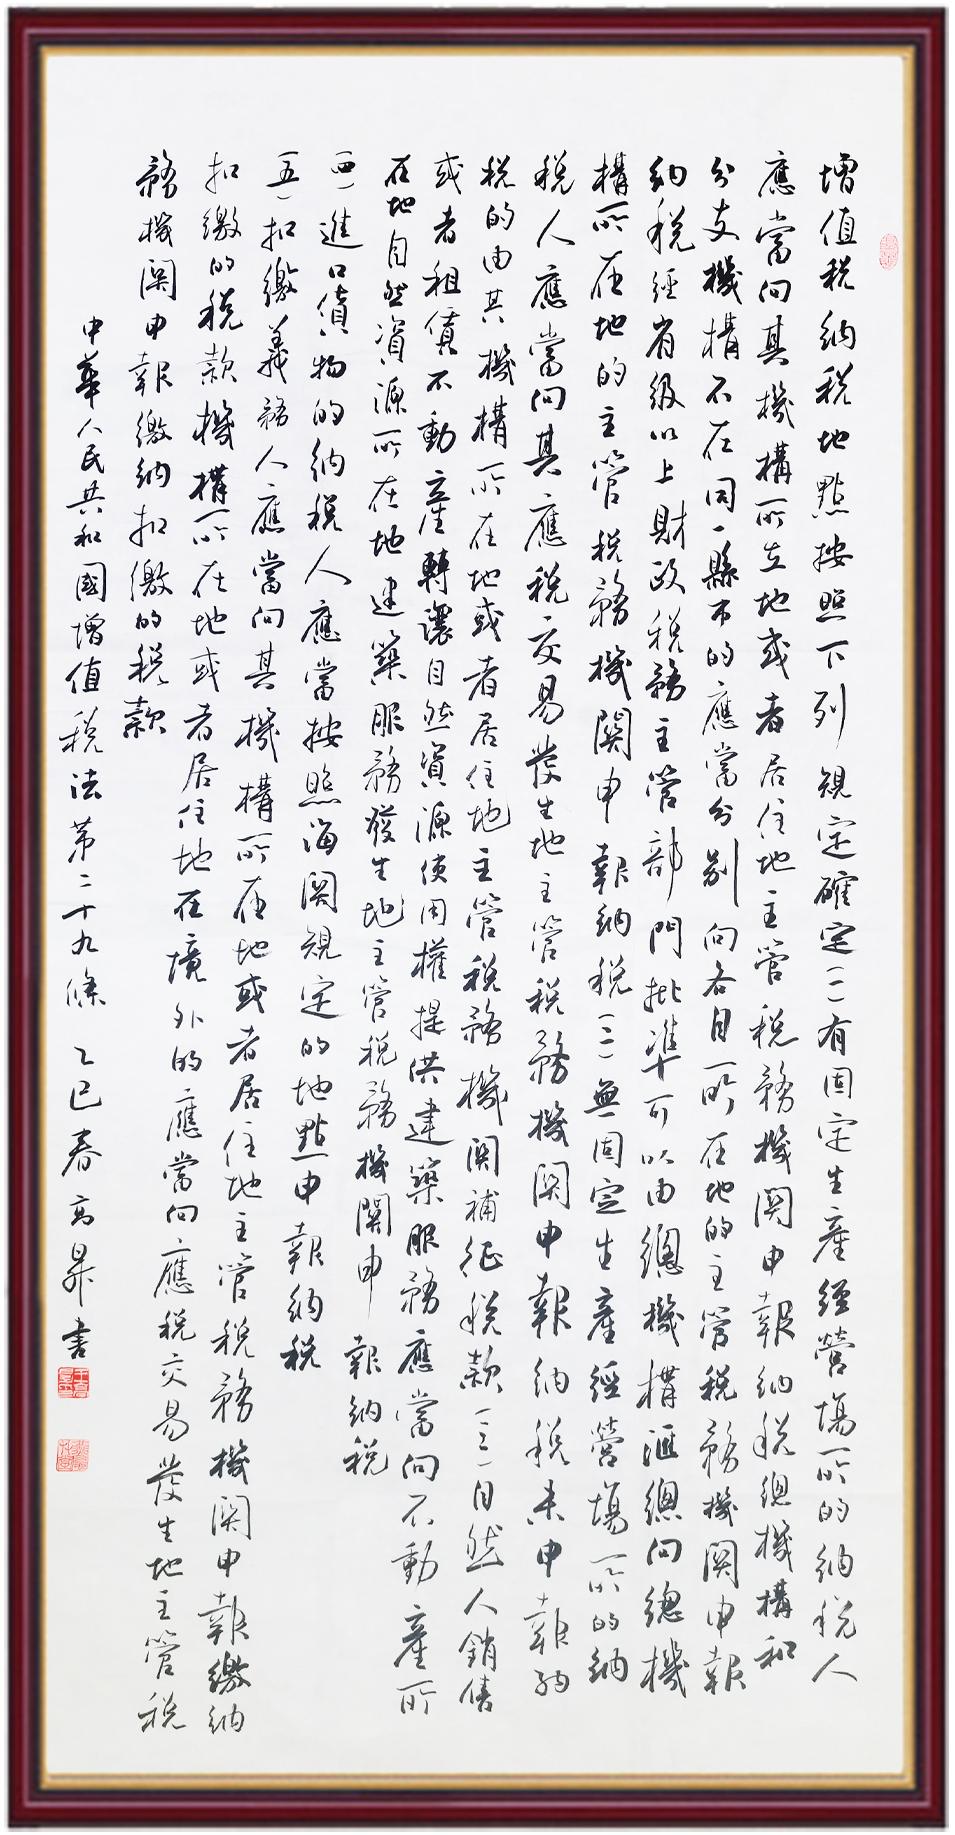 增值税納税地點按照下列規定確定(一)有固定生産經營場所的納税人
應當向其機構所在地或者居住地主管税務機關申報納税總機構和
分支機構不在同一縣市的應當分别向各自所在地的主管税務機關申報
納税經省級以上財政税務主管部門批準可以由總機構滙總向總機
構所在地的主管税務機關申報納税(二)無固定生産經營場所的納
税人應當向其應税交易發生地主管税務機關申報納税未申報納
税的由其機構所在地或者居住地主管税務機關補征税款(三)自然人銷售
或者租賃不動産轉讓自然資源使用權提供建築服務應當向不動産所
在地自然資源所在地建築服務發生地主管税務機關申報納税
(四)進口貨物的納税人應當按照海關規定的地點申報納税
(五)扣繳義務人應當向其機構所在地或者居住地主管税務機關申報繳納
扣繳的税款機構所在地或者居住地在境外的應當向應税交易發生地主管税
務機關申報繳納扣繳的税款
中華人民共和國增值税法第二十九條 乙巳春高昇書